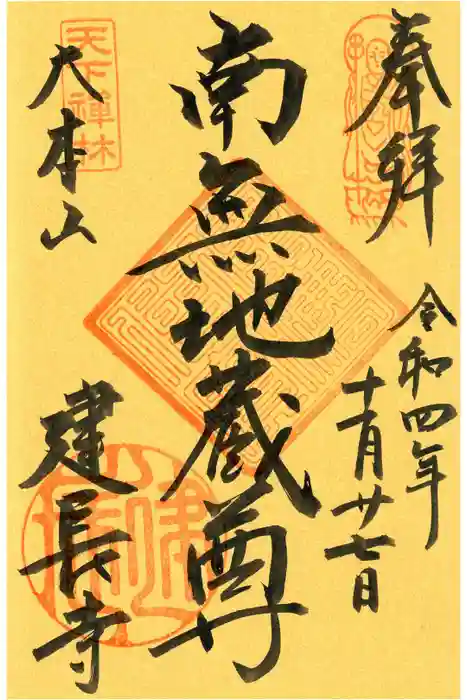 奉拝
令和四年
十一月廿七日
南無地蔵尊
天下禅林
大本山
建長寺